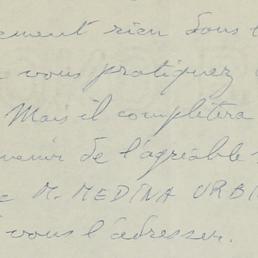 ement rien dans
vous pratiquez
Mais il complètera
venir de l'agréable
M. MEDINA URBI
vous l'adresser.